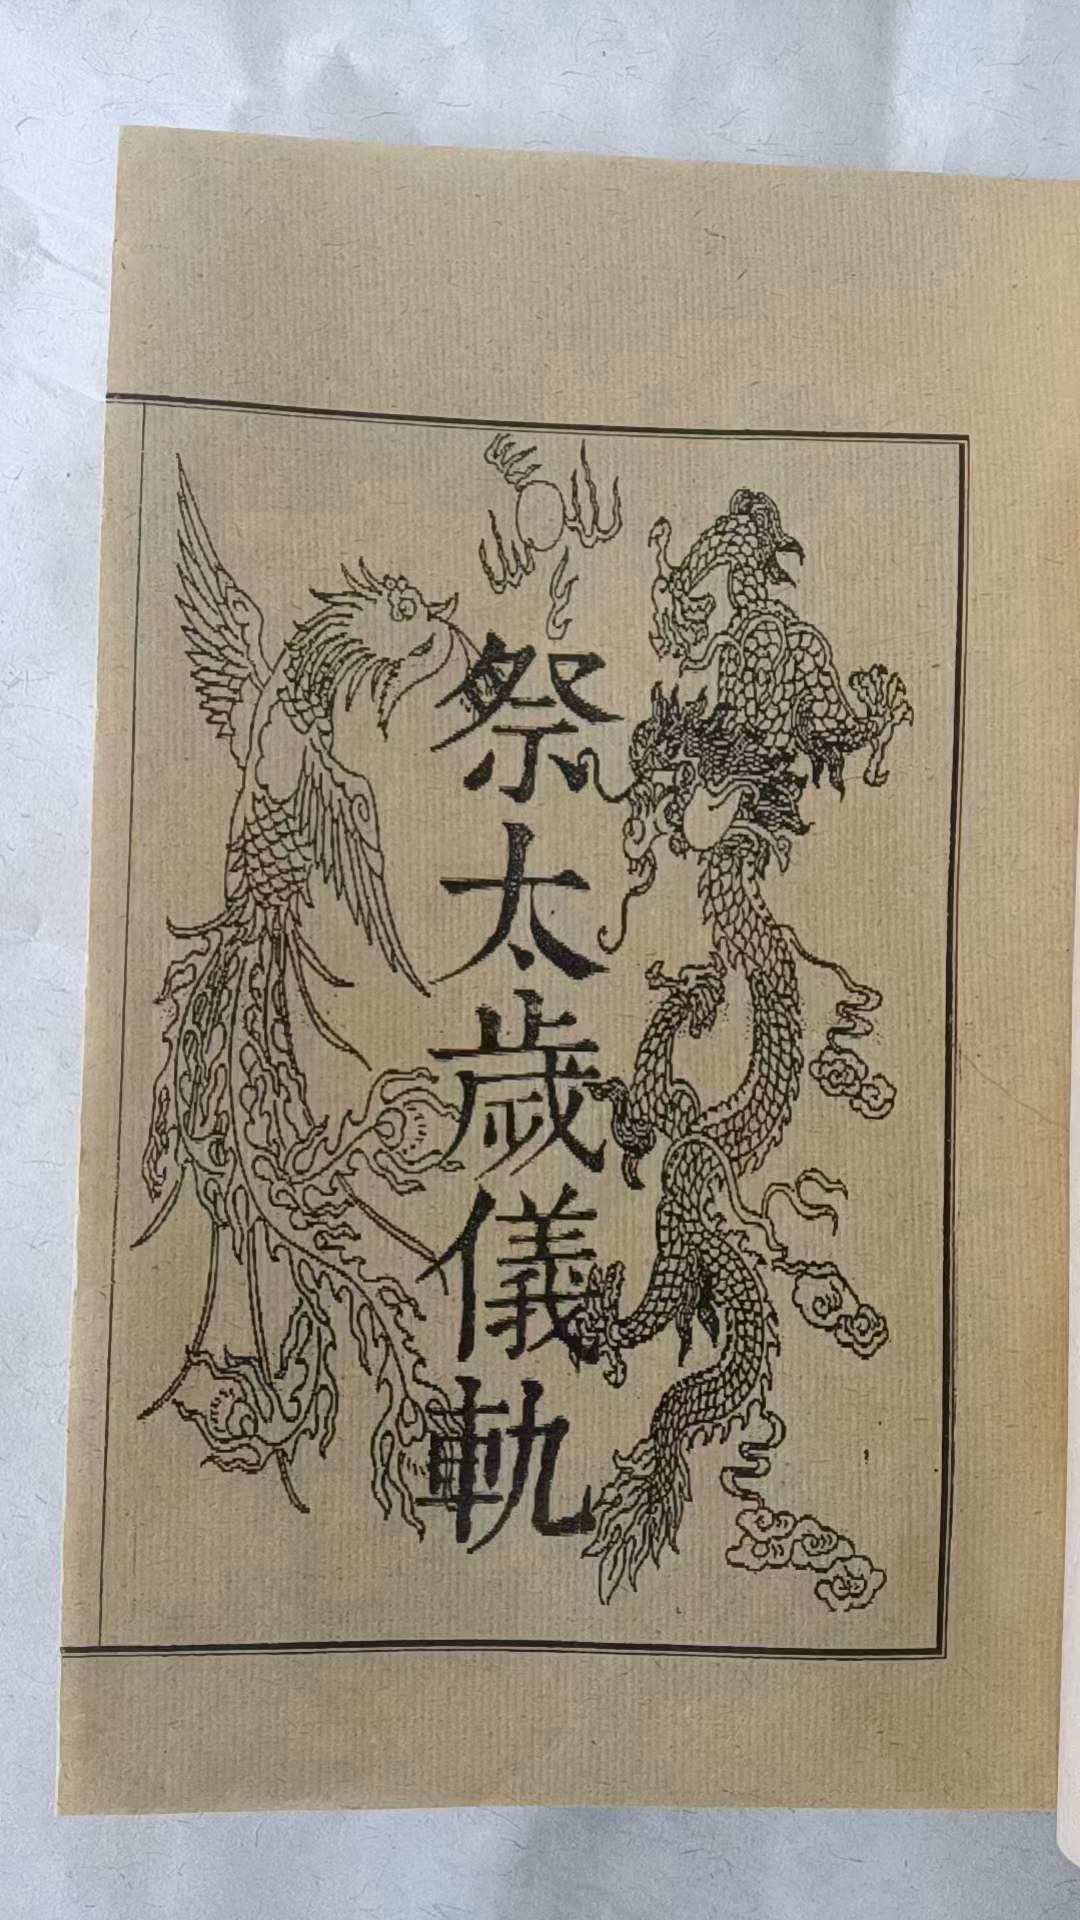 祭太歲儀軌